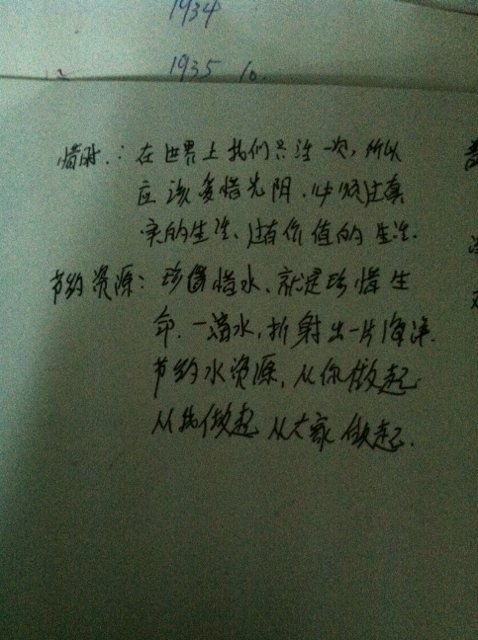 1934
1935 10.
惜时：在世界上我们只活一次，所以
应该爱惜光阴.必须过真
实的生活、过有价值的生活.
节约资源：珍惜水、就是珍惜生
命.一滴水，折射出一片海洋.
节约水资源，从你做起
从我做起 从大家做起.